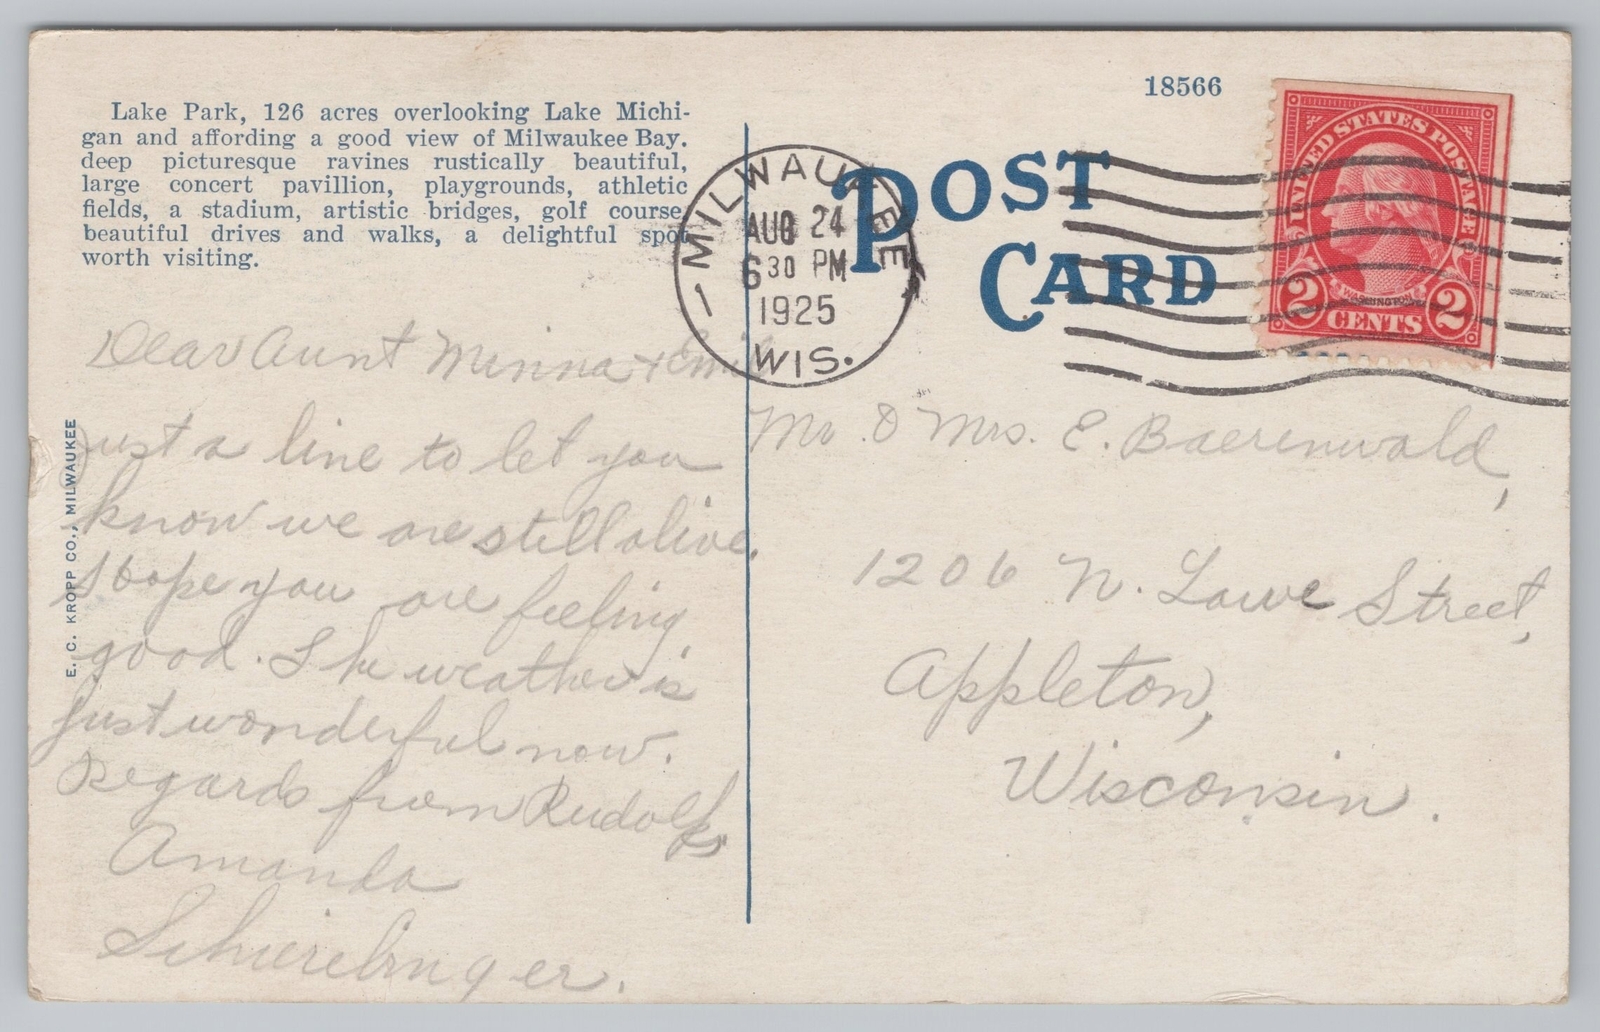 Lake Park, 126 acres overlooking Lake Michi-
gan and affording a good view of Milwaukee Bay.
deep picturesque ravines rustically beautiful,
large concert pavillion, playgrounds, athletic
fields, a stadium, artistic bridges, golf course,
beautiful drives and walks, a delightful spot
worth visiting.
E. C. KROPP CO., MILWAUKEE
Dear Aunt Minna + Emil
Just a line to let you
know we are still alive.
Hope you are feeling
good. The weather is
just wonderful now.
Regards from Rudolf &
Amanda
18566
POST
CARD
MILWAUKEE
AUG 24
6 30 PM
1925
WIS.
UNITED STATES POSTAGE
WASHINGTON
2 CENTS 2
Mr. & Mrs. E. Baerenwald,
1206 N. Lawe Street,
Appleton,
Wisconsin.